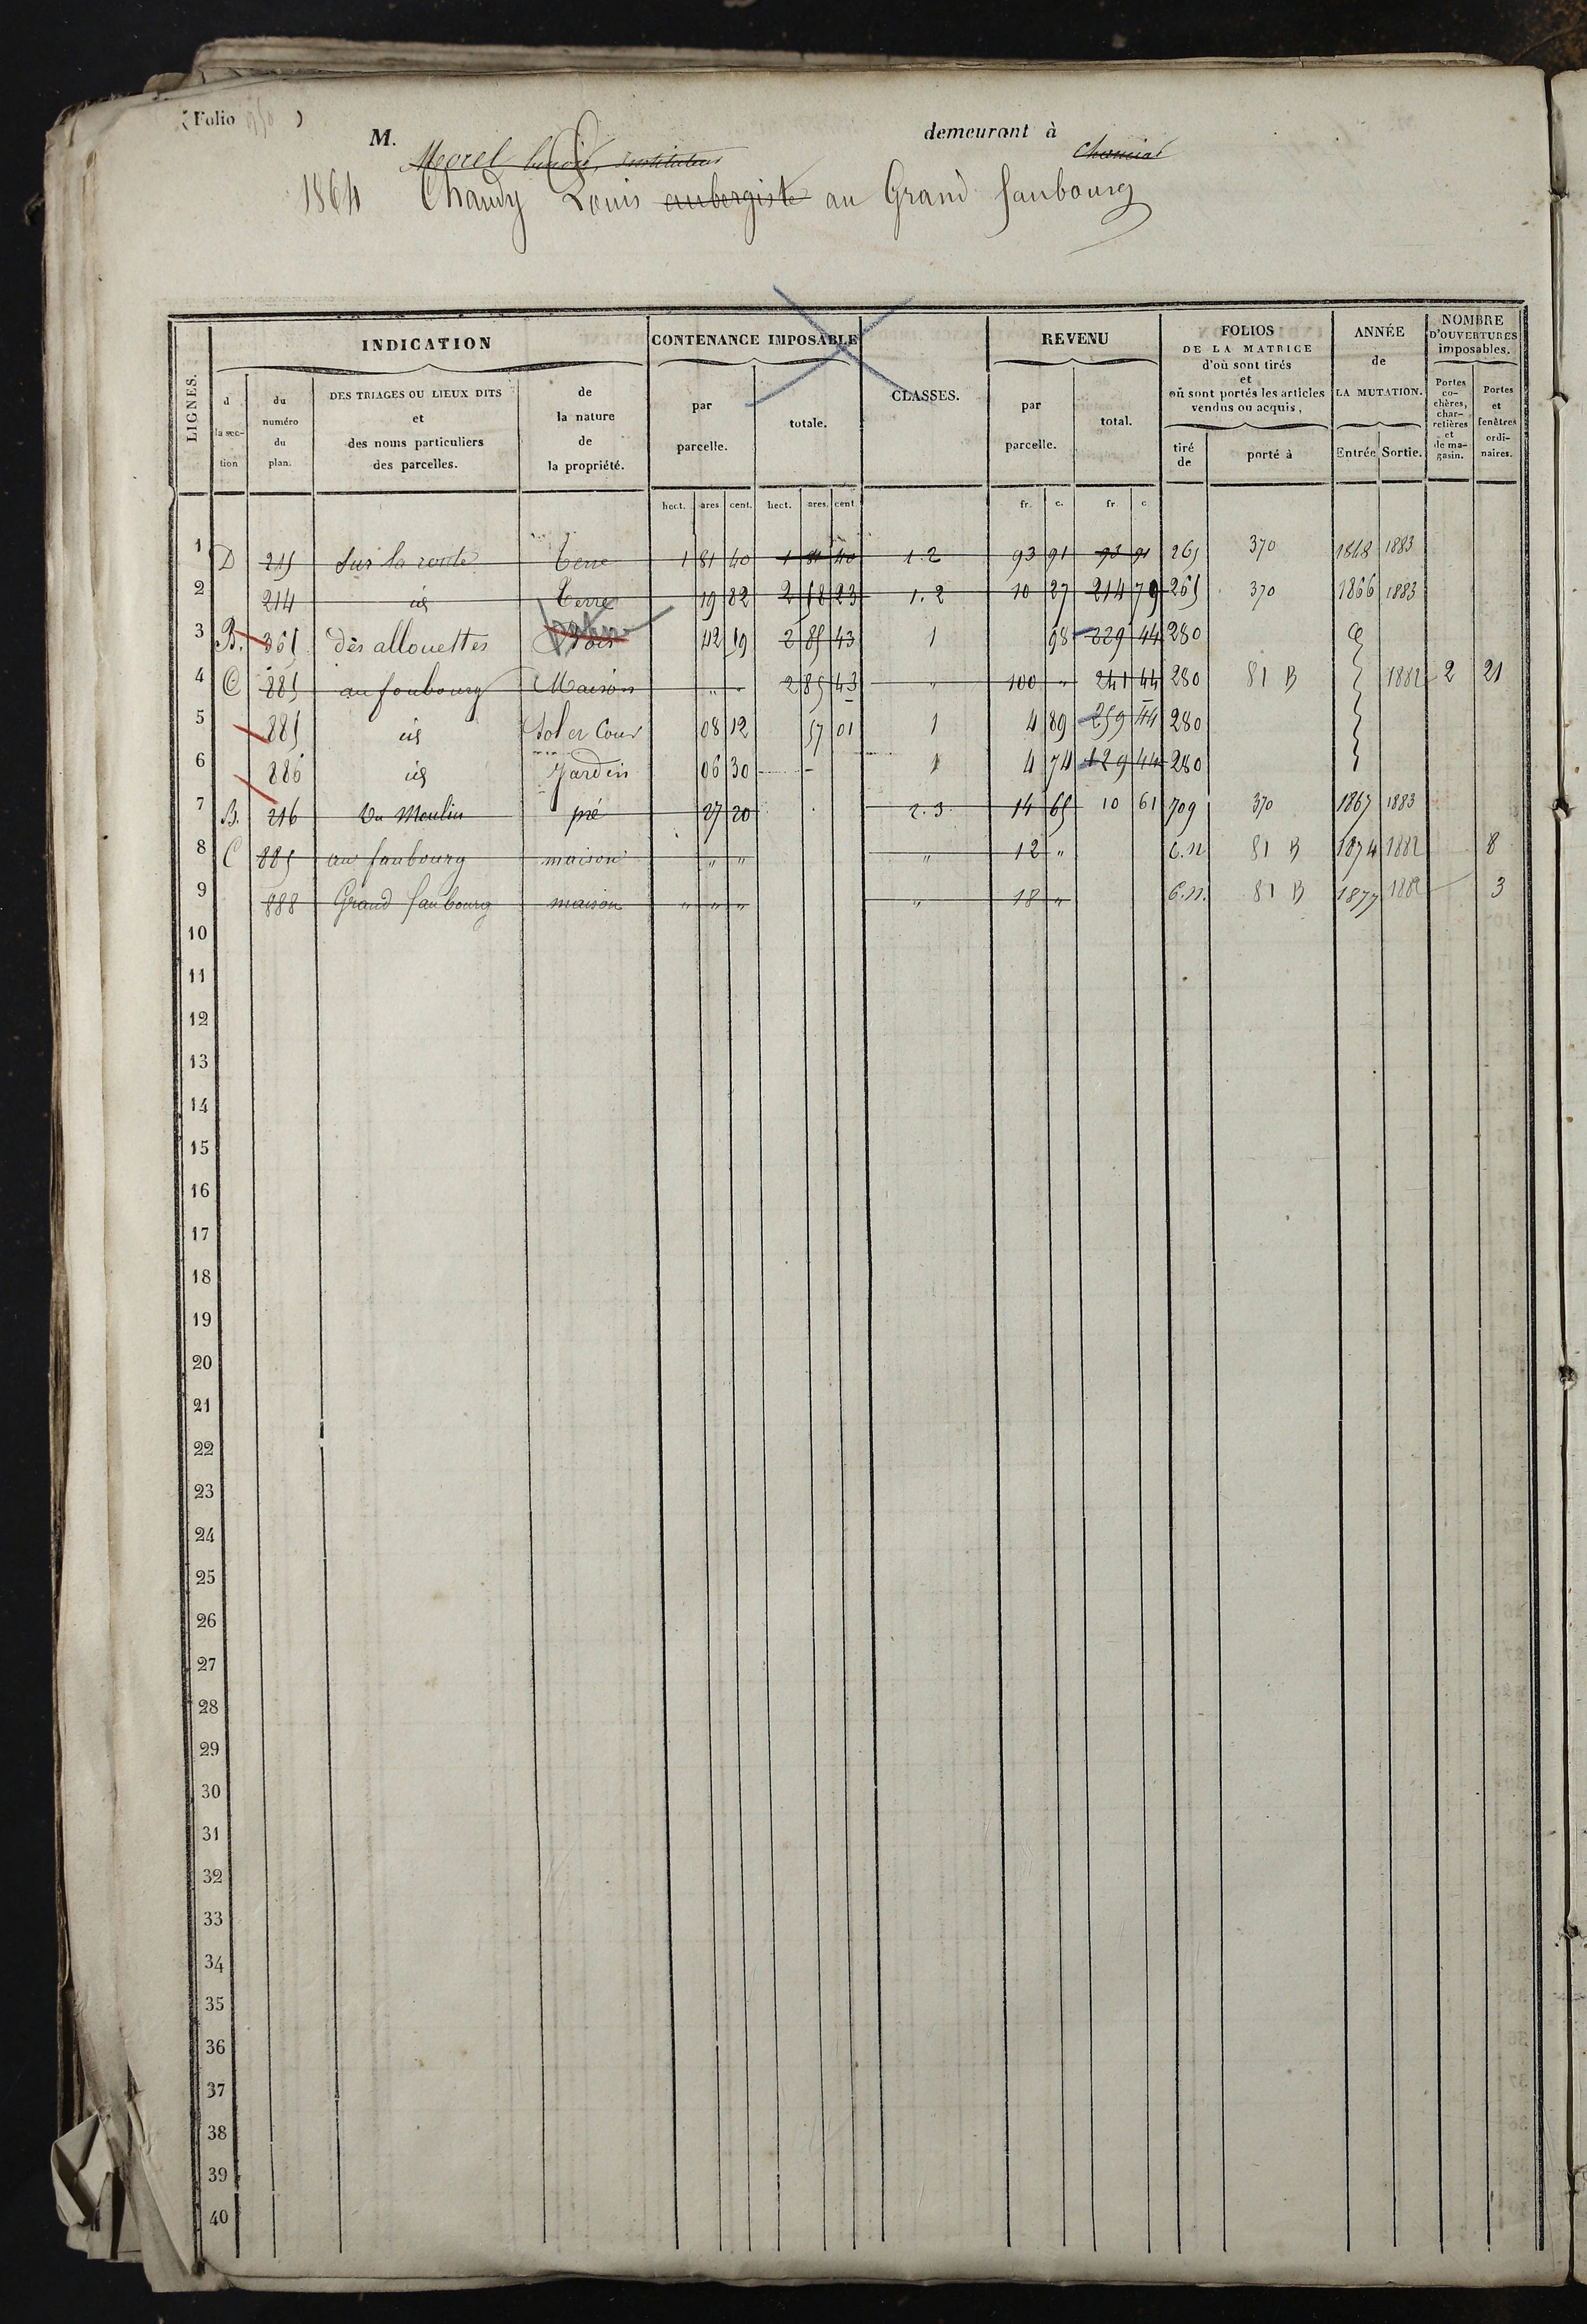 (Folio )
M. Morel benoit, instituteur demeurant à
1864 Chaudy Louis aubergiste au Grand faubourg
LIGNES.
INDICATION
CONTENANCE IMPOSABLE
CLASSES.
REVENU
FOLIOS DE LA MATRICE d'où sont tirés et où sont portés les articles vendus ou acquis,
ANNÉE de LA MUTATION.
NOMBRE D'OUVERTURES imposables.
d la sec-tion
du numéro du plan.
DES TRIAGES OU LIEUX DITS et des noms particuliers des parcelles.
de la nature de la propriété.
par parcelle.
totale.
par parcelle.
total.
tiré de
porté à
Entrée
Sortie.
Portes co-chères, char-retières et de ma-gasin.
Portes et fenêtres ordi-naires.
hect. ares cent. hect. ares. cent. fr. c. fr c
1 D 215 Sur la route Terre 1 81 40 1 81 40 1.2 93 91 93 91 265 370 1868 1883
2 214 id Terre 19 82 2 58 23 1.2 10 27 214 79 265 370 1866 1883
3 B. 361 dès allouettes Bois 42 19 2 85 43 1 98 229 44 280
4 C 885 au foubourg Maison " " 2 85 43 " 100 " 241 44 280 81 B 1882 2 21
5 885 id Sol et Cour 08 12 57 01 1 4 89 259 44 280
6 886 id Jardin 06 30 1 4 74 129 44 280
7 B. 216 Du Moulin pré 27 20 2.3 14 65 10 61 709 370 1867 1883
8 C 885 au faubourg maison " " " 12 " C.N 81 B 1874 1882 8
9 888 Grand faubourg maison " " " " 18 " C.N. 81 B 1877 1882 3
10
11
12
13
14
15
16
17
18
19
20
21
22
23
24
25
26
27
28
29
30
31
32
33
34
35
36
37
38
39
40